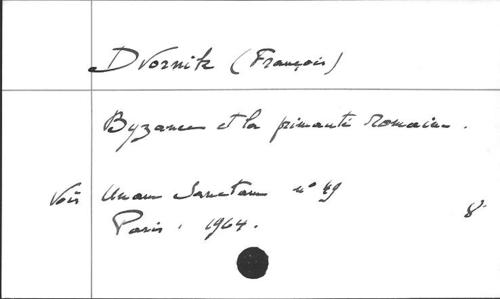 Dvornik (François)
Byzance et la primauté romaine.
Voir Unam Sanctam n° 49
Paris. 1964. 8°